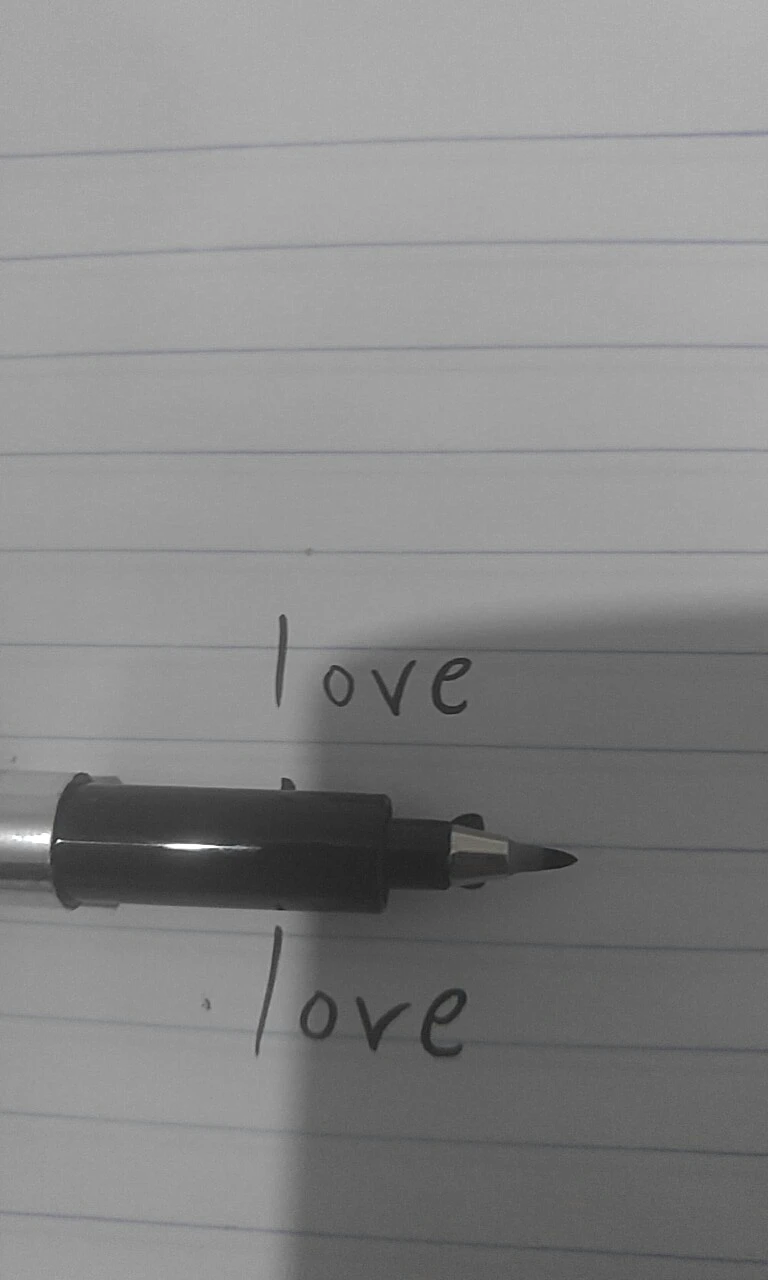 love
love